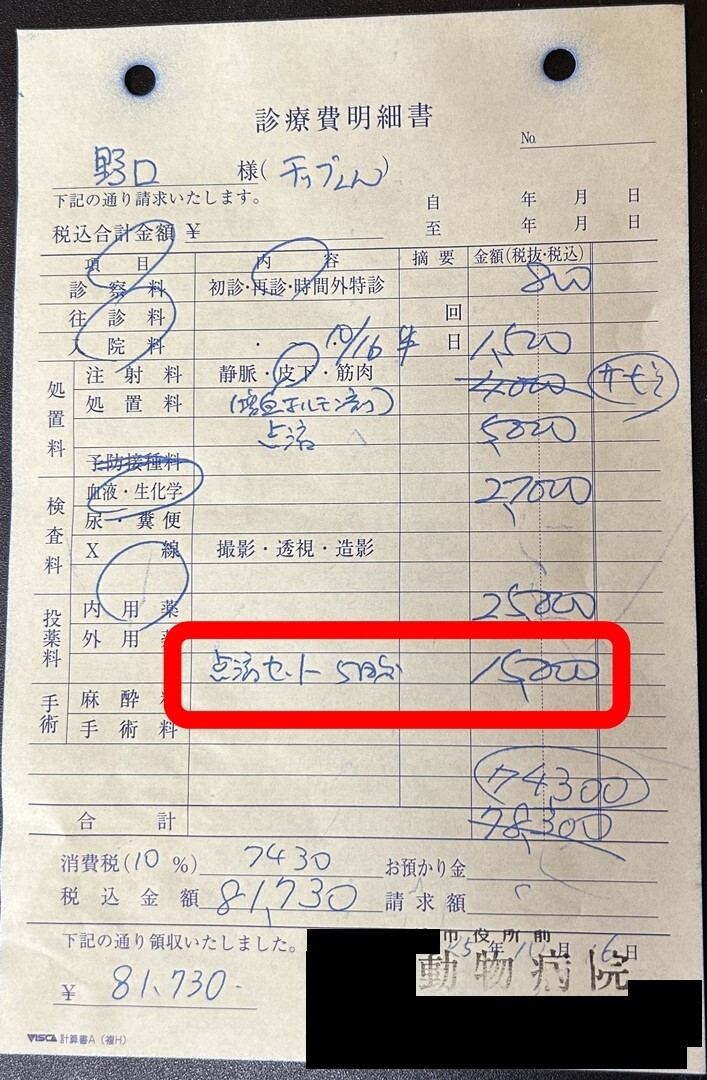 診療費明細書
No.
野口 様(チップくん)
下記の通り請求いたします。
自 年 月 日
税込合計金額 ¥
至 年 月 日
項目 内容 摘要 金額(税抜・税込)
診察料 初診・再診・時間外特診 800
往診料 回
入院料 10/16 半 日 1,500
処置料
注射料 静脈・皮下・筋肉 4000 サービス
処置料 (増血ホルモン剤)
点滴 5000
予防接種料
検査料
血液・生化学 27000
尿・糞便
X線 撮影・透視・造影
投薬料
内用薬 25,000
外用薬
点滴セット 5日分 15,000
手術
麻酔料
手術料
74,300
合計 78,300
消費税(10%) 7430 お預かり金
税込金額 81,730 請求額
下記の通り領収いたしました。
年 月 16日
市役所前
動物病院
¥ 81,730-
VISCA 計算書A(複H)